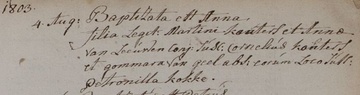 1803.
4. Aug: Baptizata est Anna
filia Legit: Martini kanters et Annæ
van Leeuwen conj: Susc: Cornelius kanters
et gommara van geel abs: eorum Loco sust:
petronilla kokke.